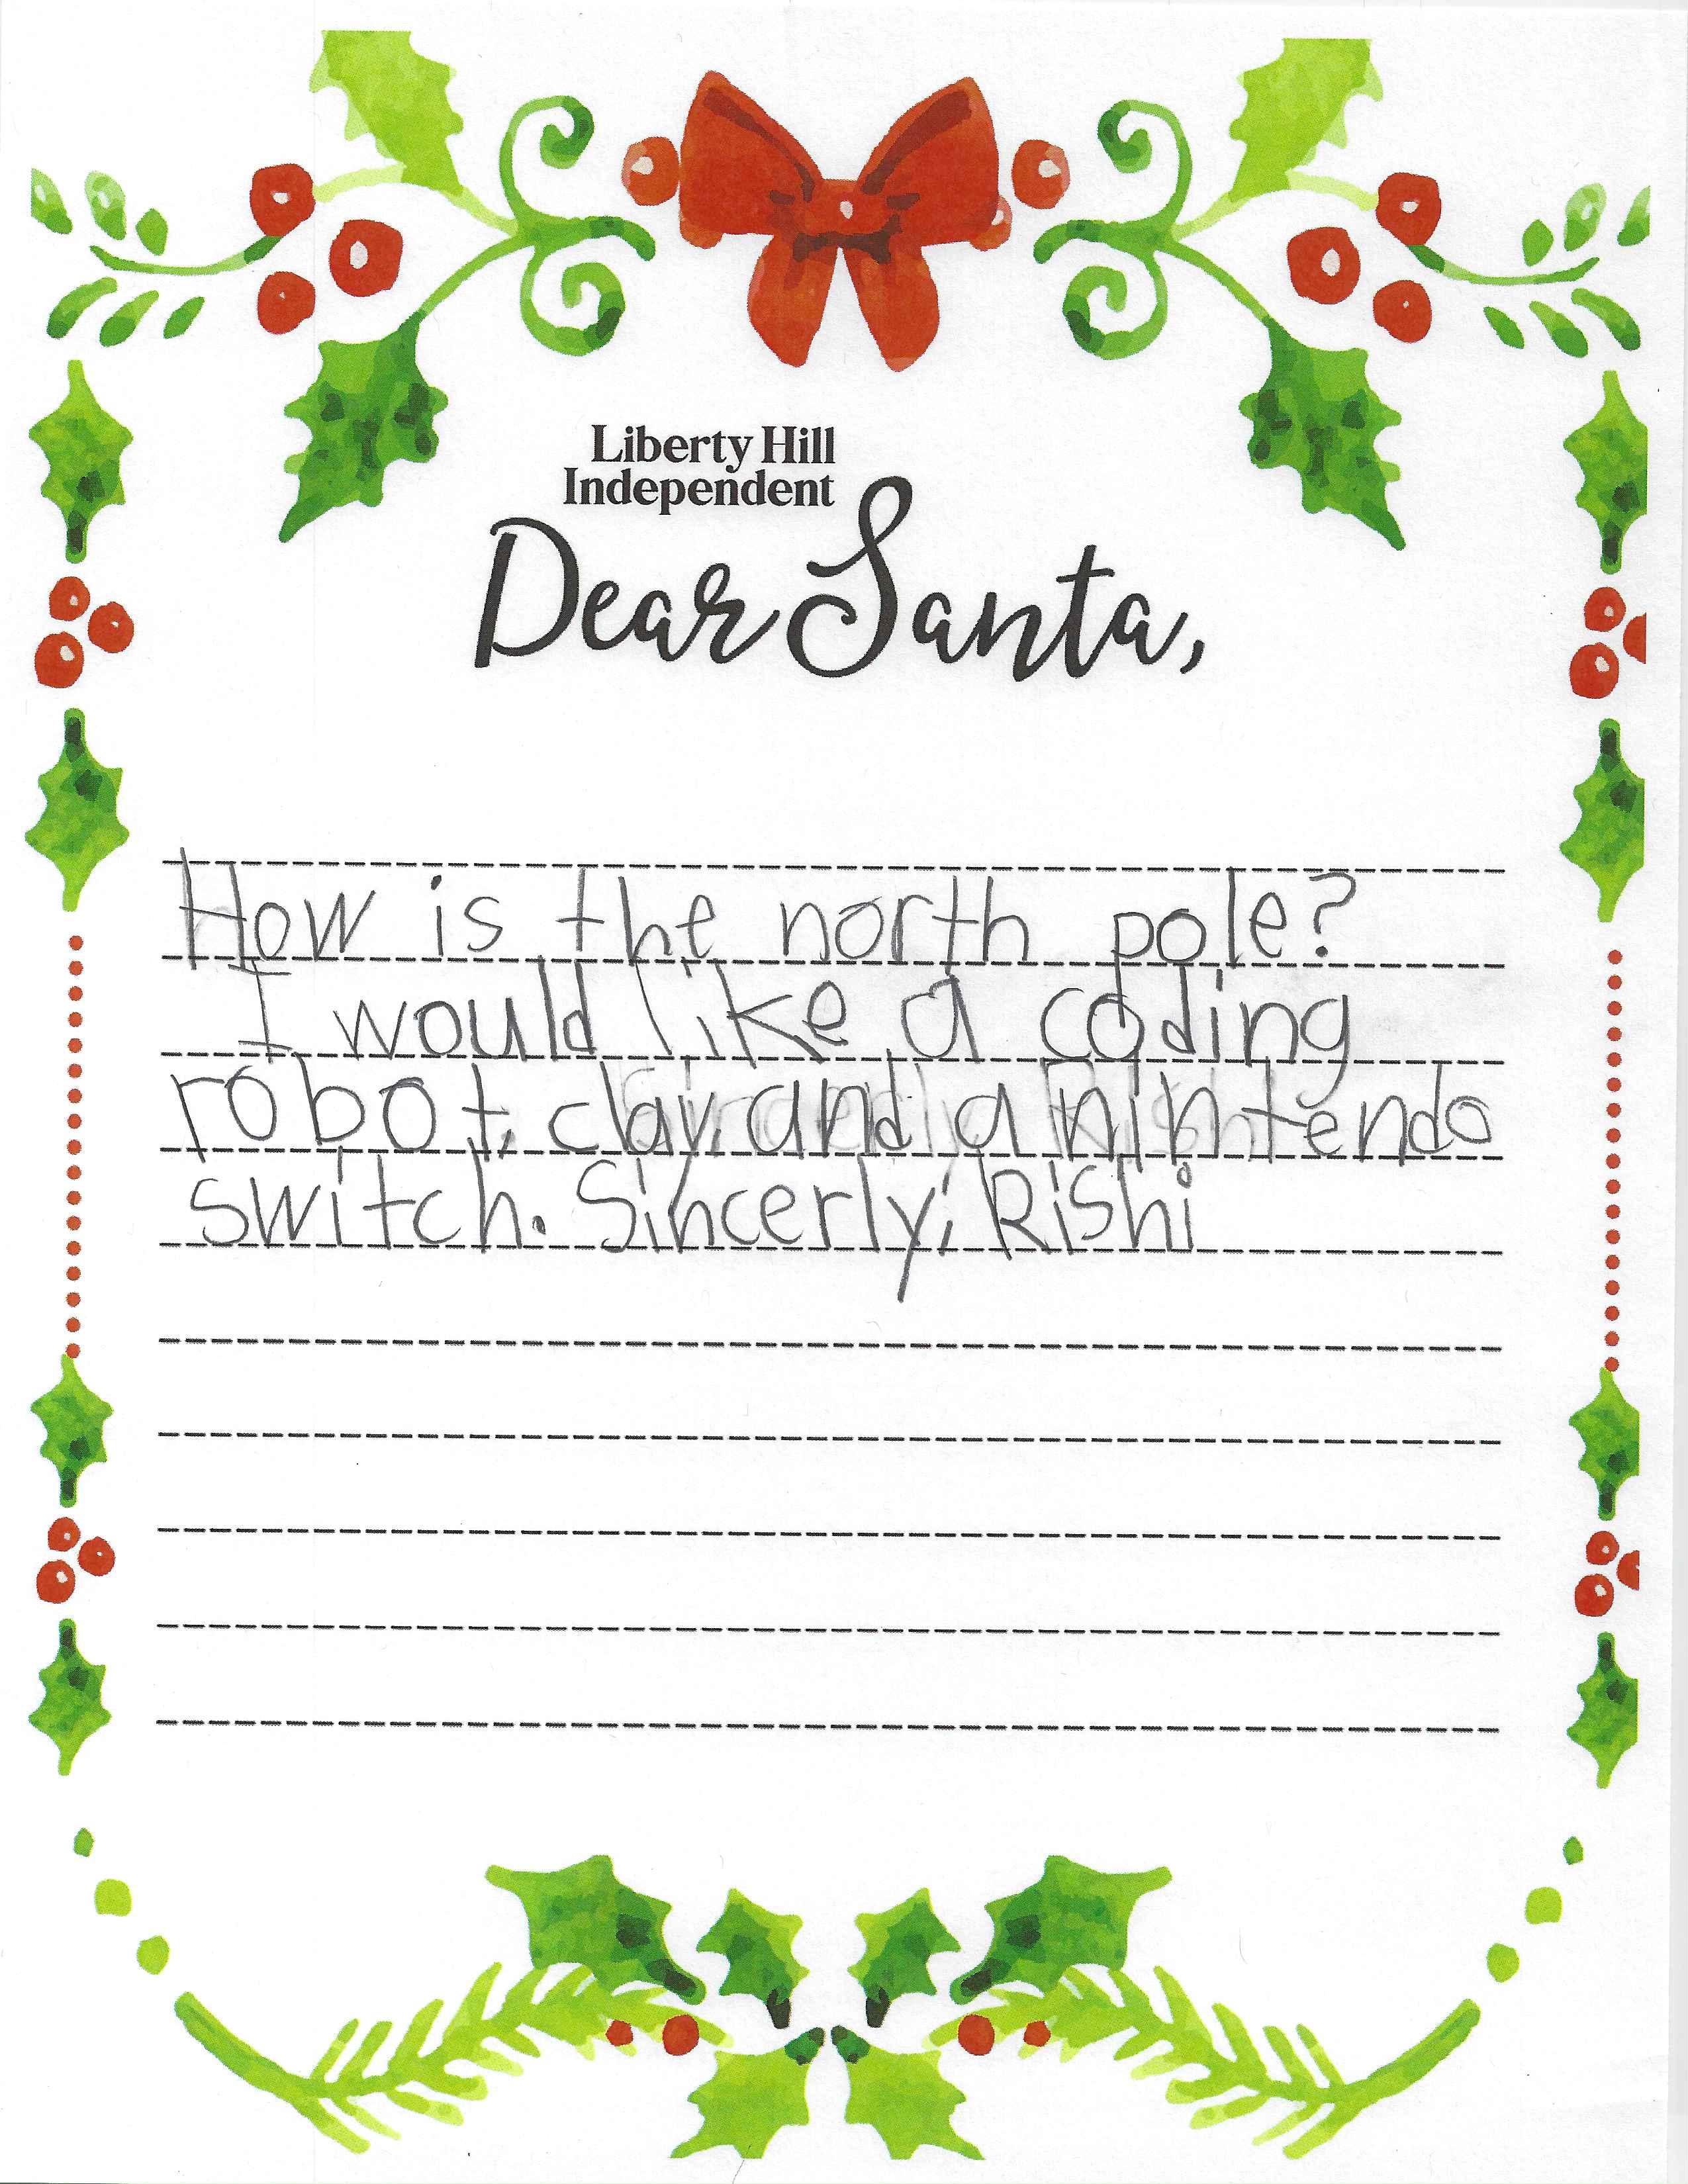 Liberty Hill
Independent
Dear Santa,
How is the north pole?
I would like a coding
robot, clay, and a nintendo
switch. Sincerly, Rishi